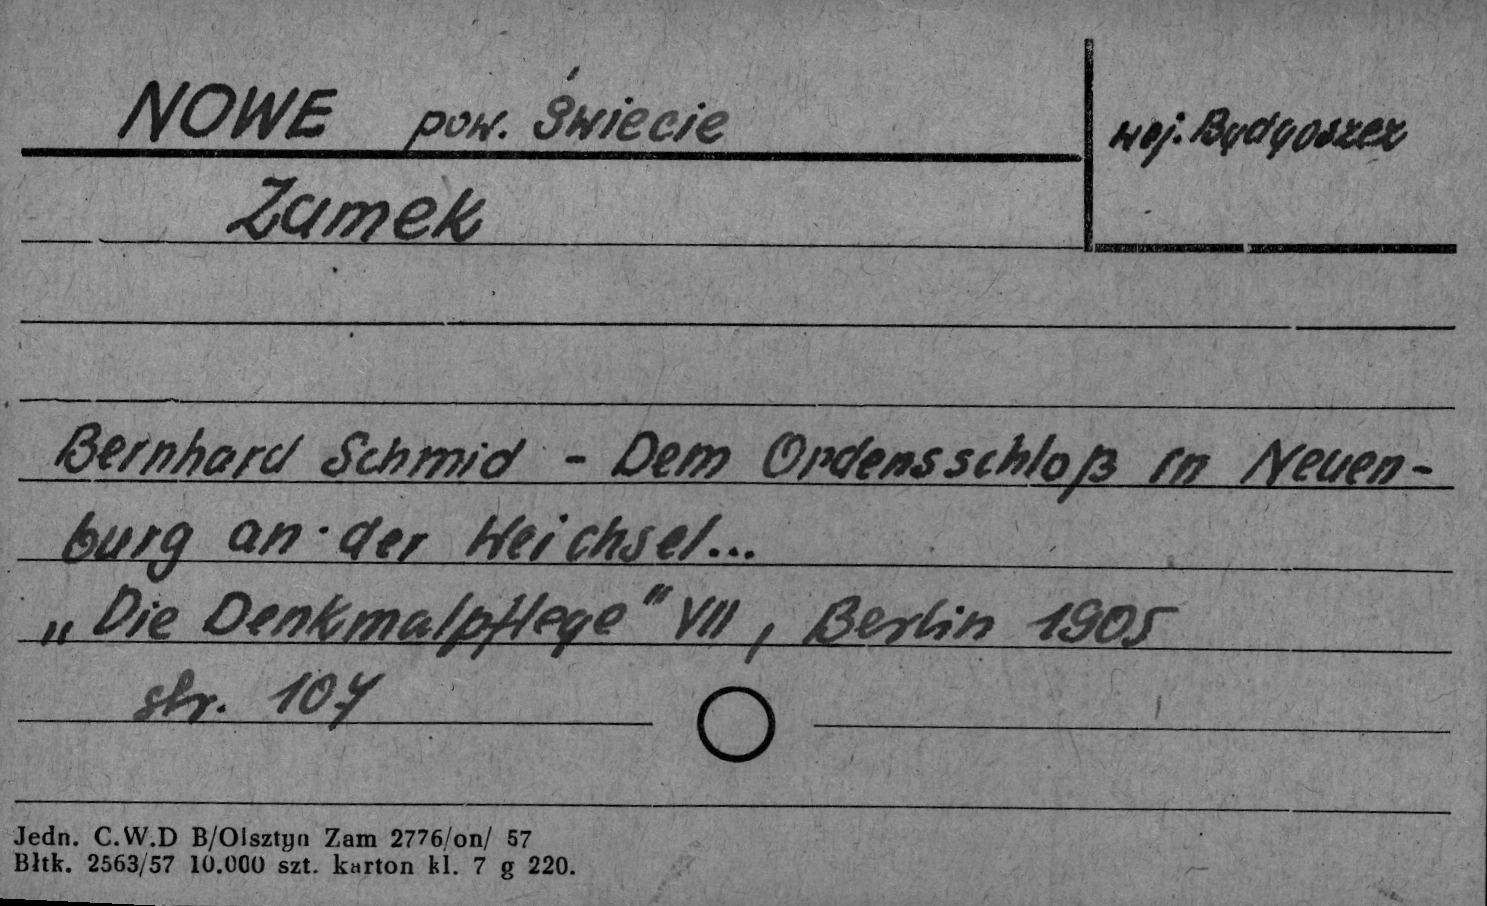 NOWE pow. Świecie
woj. Bydgoszcz
Zamek
Bernhard Schmid - Dem Ordensschloß in Neuen-
burg an der Weichsel...
„Die Denkmalpflege" VII, Berlin 1905
str. 107
Jedn. C.W.D B/Olsztyn Zam 2776/on/ 57
Błtk. 2563/57 10.000 szt. karton kl. 7 g 220.